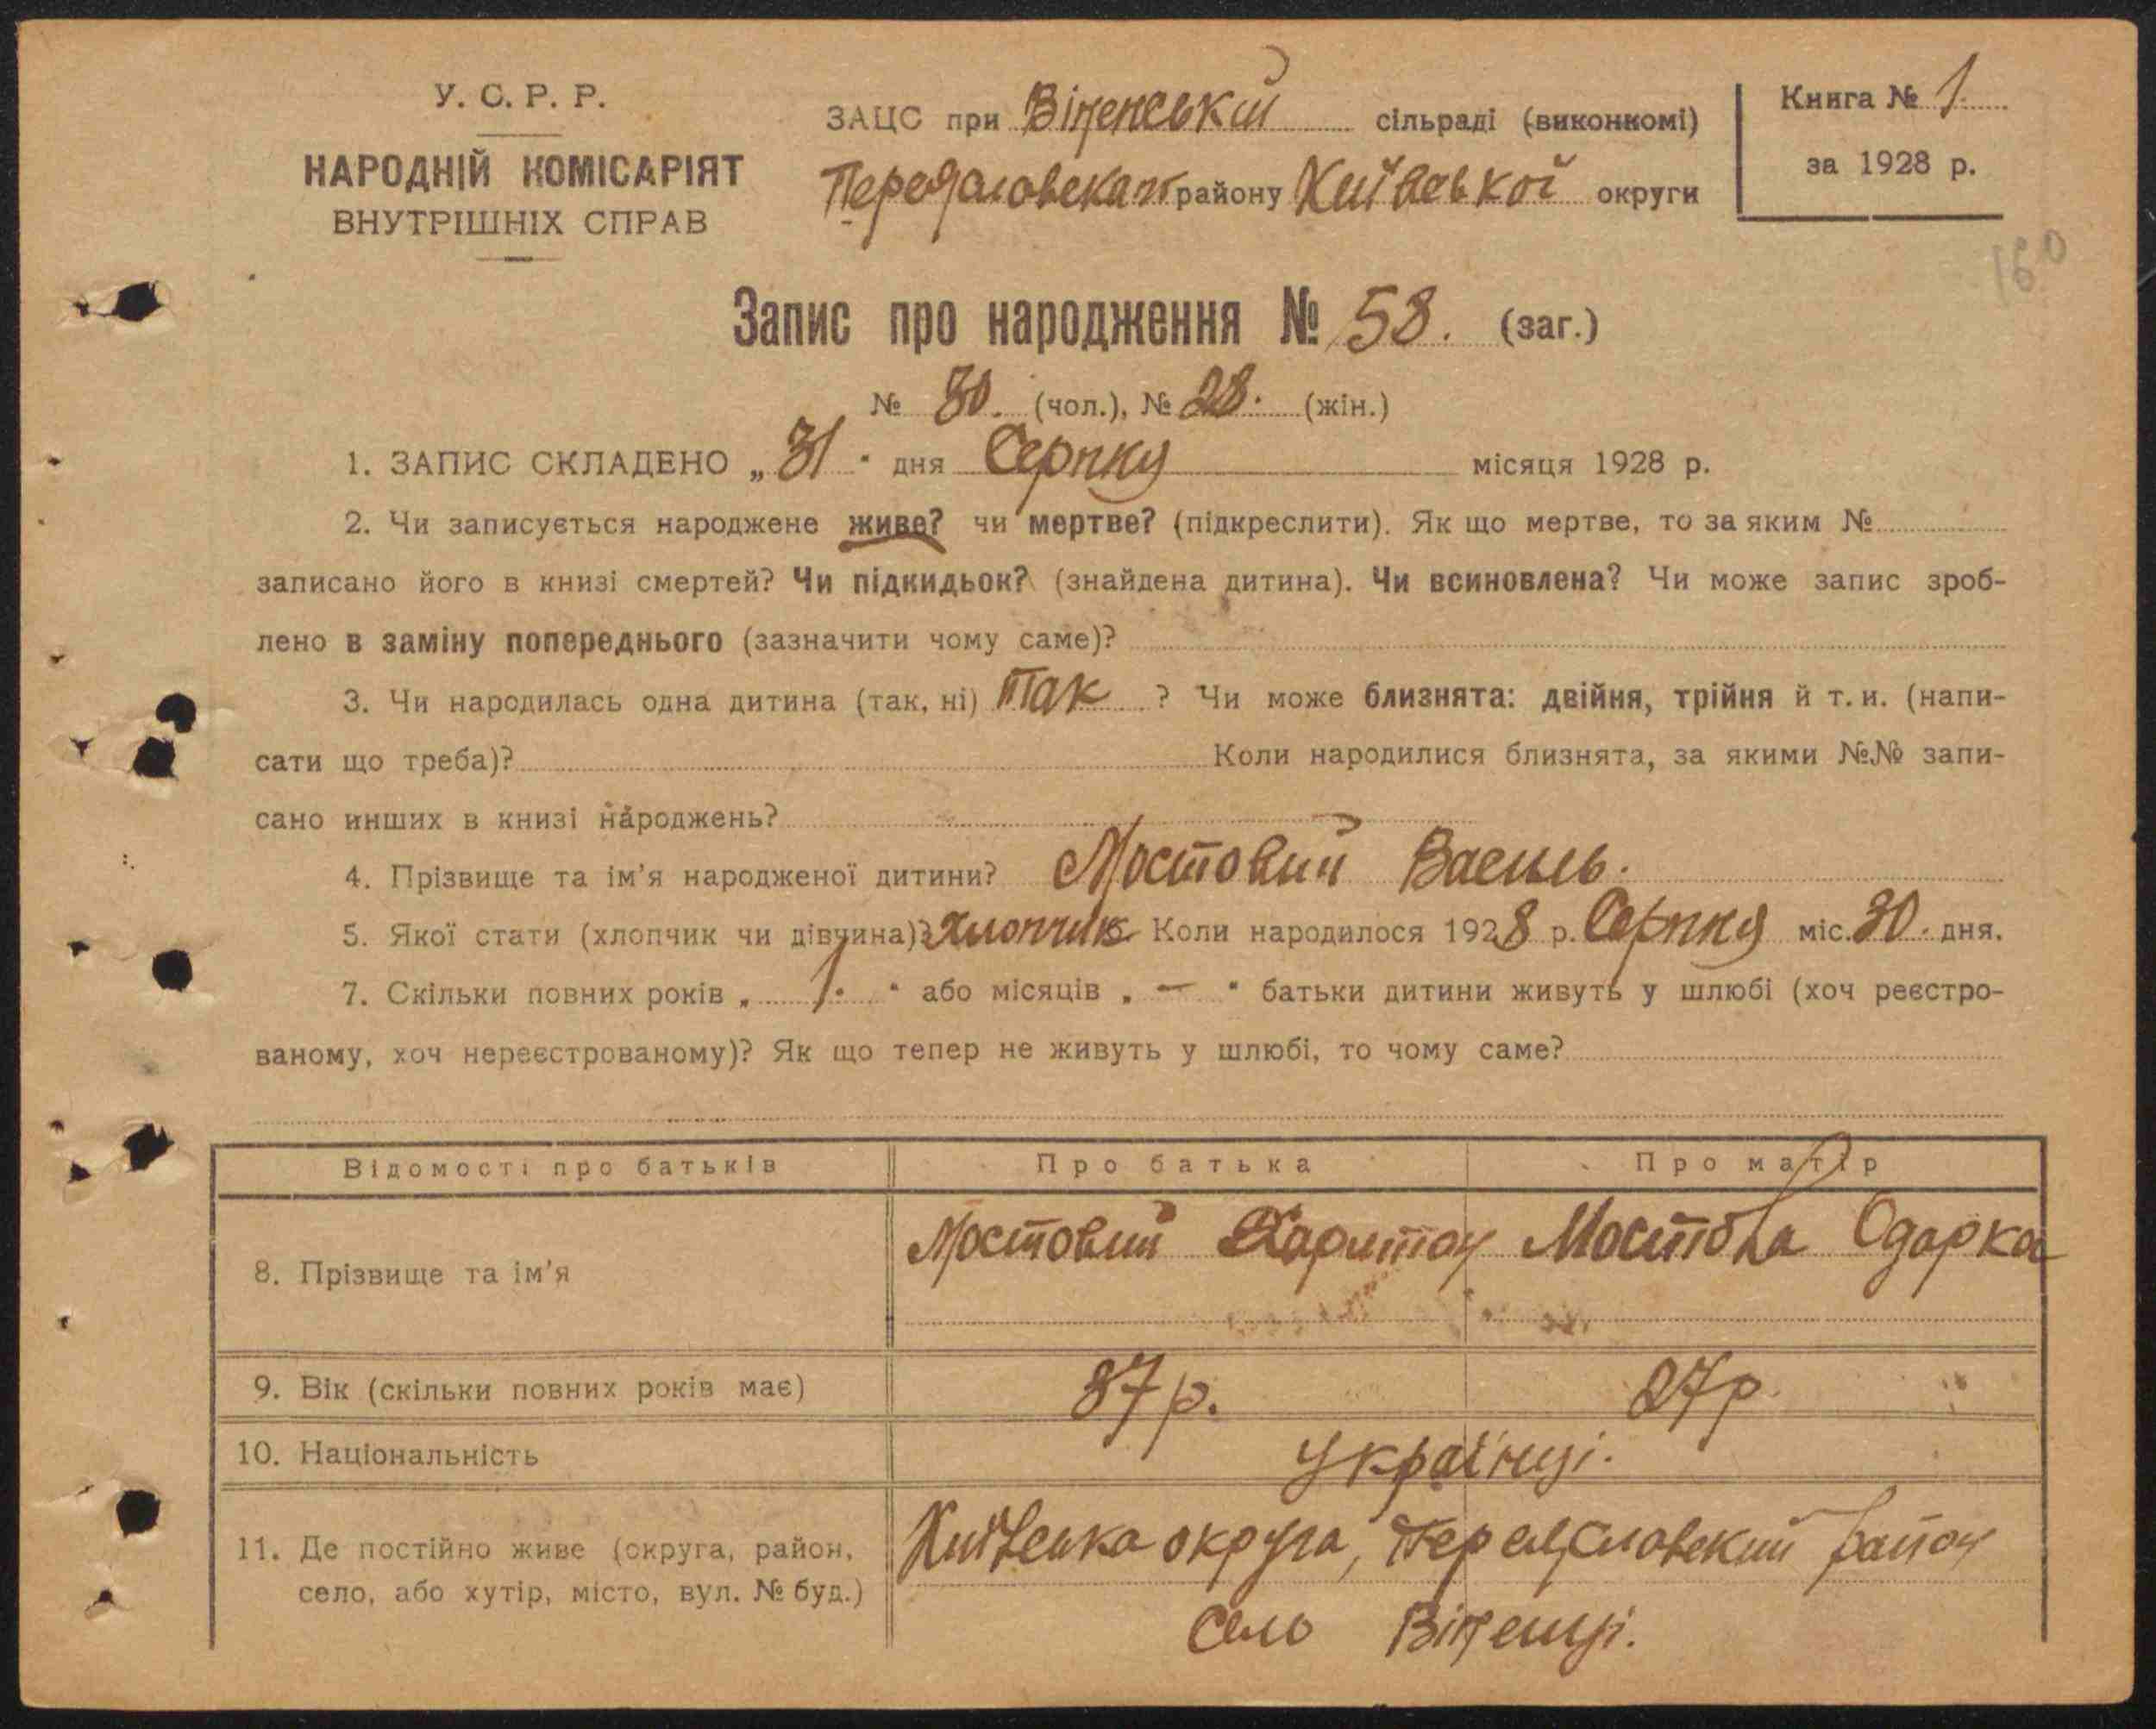 У. С. Р. Р.
НАРОДНІЙ КОМІСАРІЯТ
ВНУТРІШНІХ СПРАВ
ЗАЦС при Віненській сільраді (виконкомі)
району Київської округи
Книга № 1
за 1928 р.
160
Запис про народження № 58. (заг.)
№ 30. (чол.), № 28. (жін.)
1. ЗАПИС СКЛАДЕНО „31" дня Серпня місяця 1928 р.
2. Чи записується народжене живе? чи мертве? (підкреслити). Як що мертве, то за яким №
записано його в книзі смертей? Чи підкидьок? (знайдена дитина). Чи всиновлена? Чи може запис зроб-
лено в заміну попереднього (зазначити чому саме)?
3. Чи народилась одна дитина (так, ні) Так ? Чи може близнята: двійня, трійня й т. и. (напи-
сати що треба)? Коли народилися близнята, за якими №№ запи-
сано инших в книзі народжень?
4. Прізвище та ім'я народженої дитини? Мостовий Василь.
5. Якої стати (хлопчик чи дівчина)? Хлопчик Коли народилося 1928 р. Серпня міс. 30. дня.
7. Скільки повних років „ 1. " або місяців „ — " батьки дитини живуть у шлюбі (хоч реєстро-
ваному, хоч нереєстрованому)? Як що тепер не живуть у шлюбі, то чому саме?
Відомості про батьків Про батька Про матір
8. Прізвище та ім'я Мостовий Харитон Мостова Одарка
9. Вік (скільки повних років має) 37 р. 27 р.
10. Національність Українці.
11. Де постійно живе (округа, район, Київська округа, Переяславский район
село, або хутір, місто, вул. № буд.) Село Віненці.